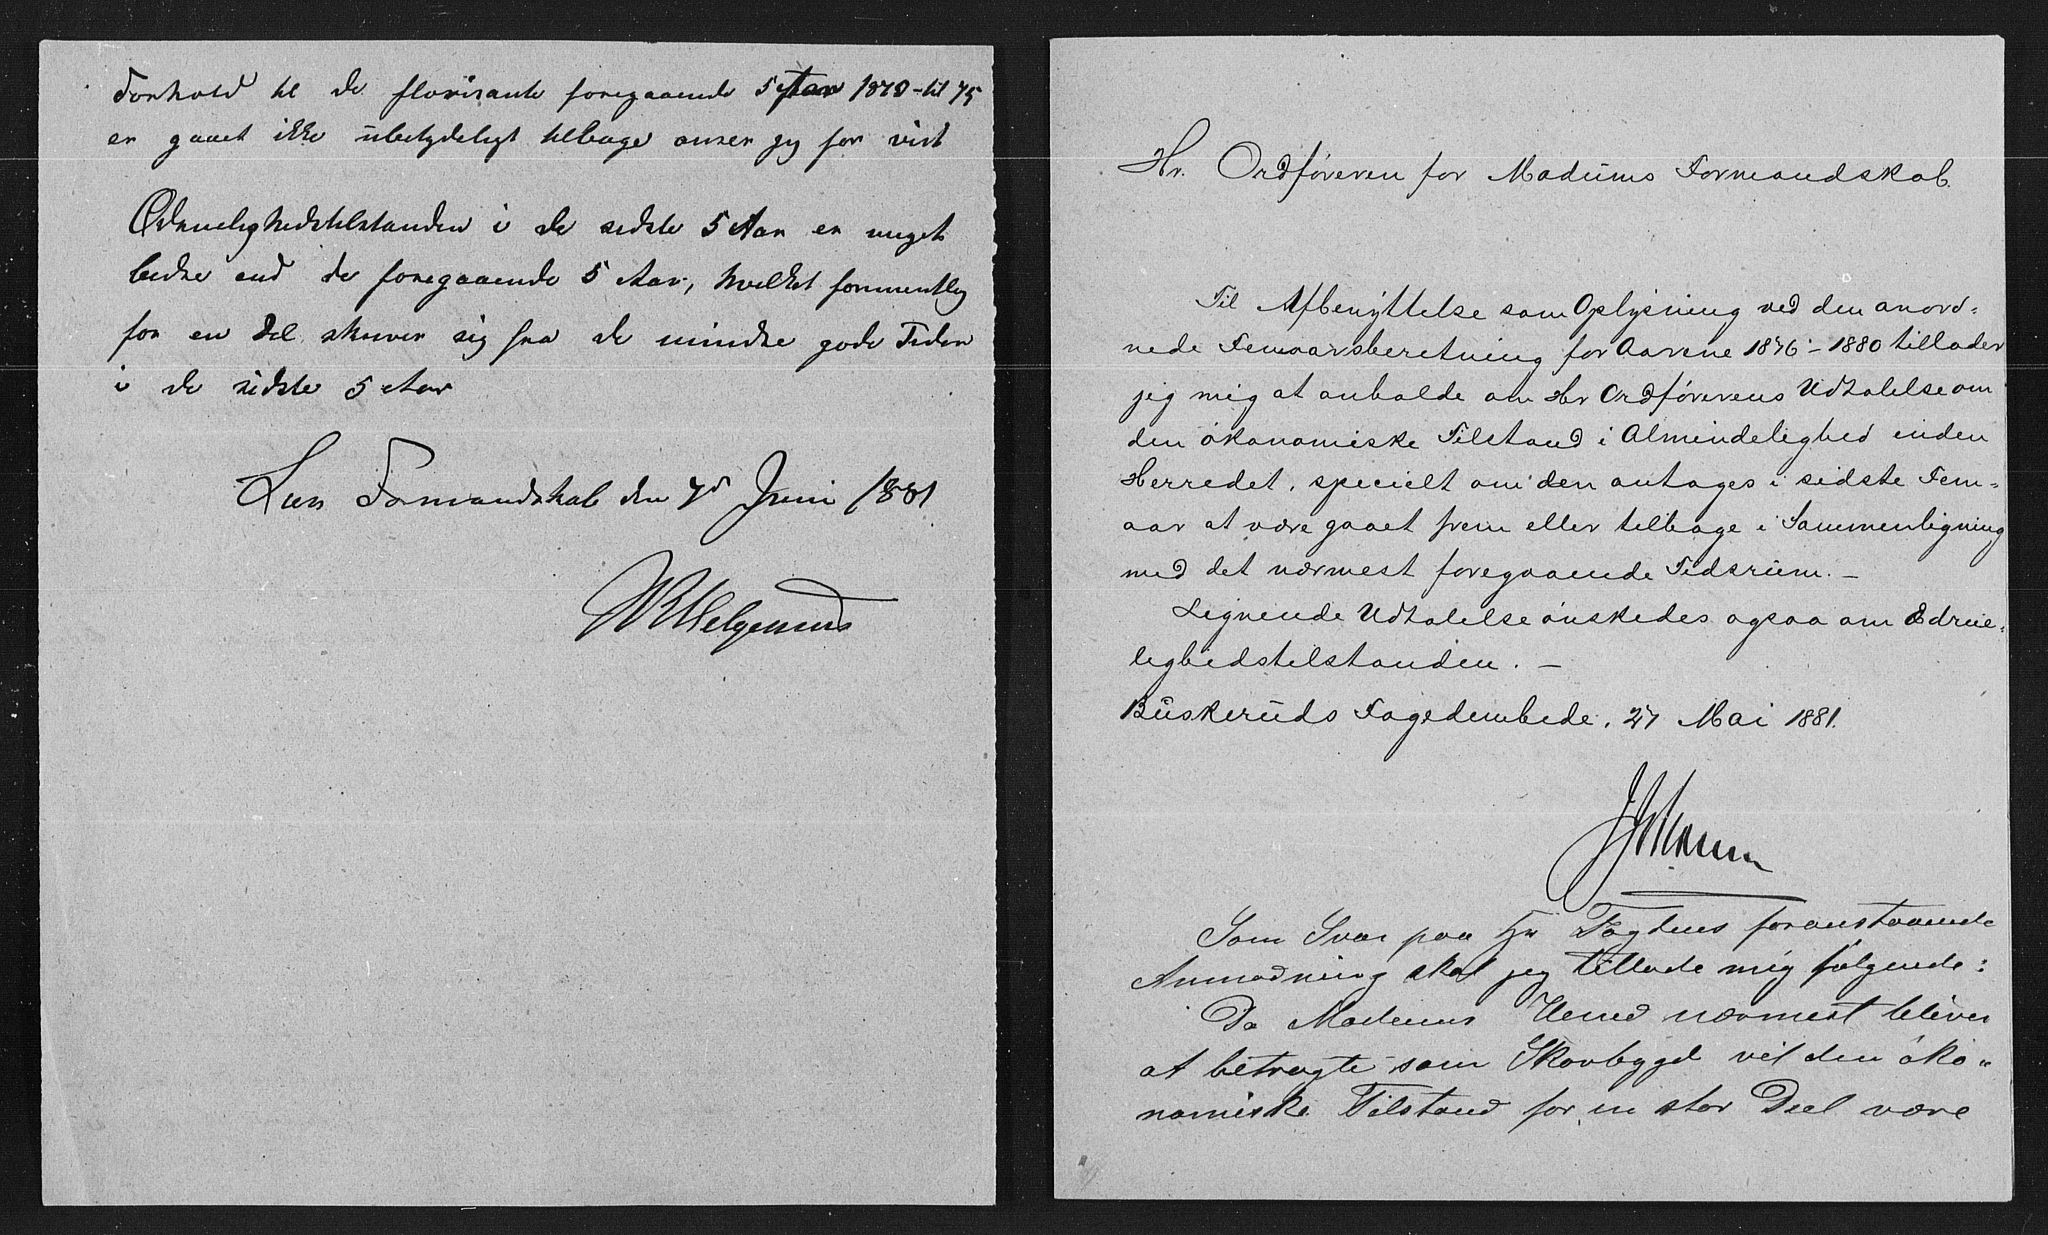 Forhold til de florisante foregaaende 5 Aar 1870 - til 75
er gaaet ikke ubetydeligt tilbage anser jeg for vist
Ædruelighedstilstanden i de sidste 5 Aar er meget
bedre end de foregaaende 5 Aar, hvilket formentlig
for en Del skriver sig fra de mindre gode Tider
i de sidste 5 Aar
Lier Formandskab den 7d Juni 1881
Helgerud
Hr. Ordføreren for Modums Formandskab.
Til Afbenyttelse som Oplysning ved den anord-
nede Femaarsberetning for Aarene 1876 - 1880 tillader
jeg mig at anholde om Hr Ordførerens Udtalelse om
den økonomiske Tilstand i Almindelighed inden
Herredet, specielt om den antages i sidste Fem-
aar at være gaaet frem eller tilbage i Sammenligning
med det nærmest foregaaende Tidsrum. -
Lignende Udtalelse ønskedes ogsaa om Ædrue-
lighedstilstanden. -
Buskeruds Fogedembede, 27 Mai 1881.
Som Svar paa Hr Fogdens foranstaaende
Anmodning skal jeg tillade mig følgende:
Da Modums Herred nærmest bliver
at betragte som Skovbygd vil den øko-
nomiske Tilstand for en stor Deel være